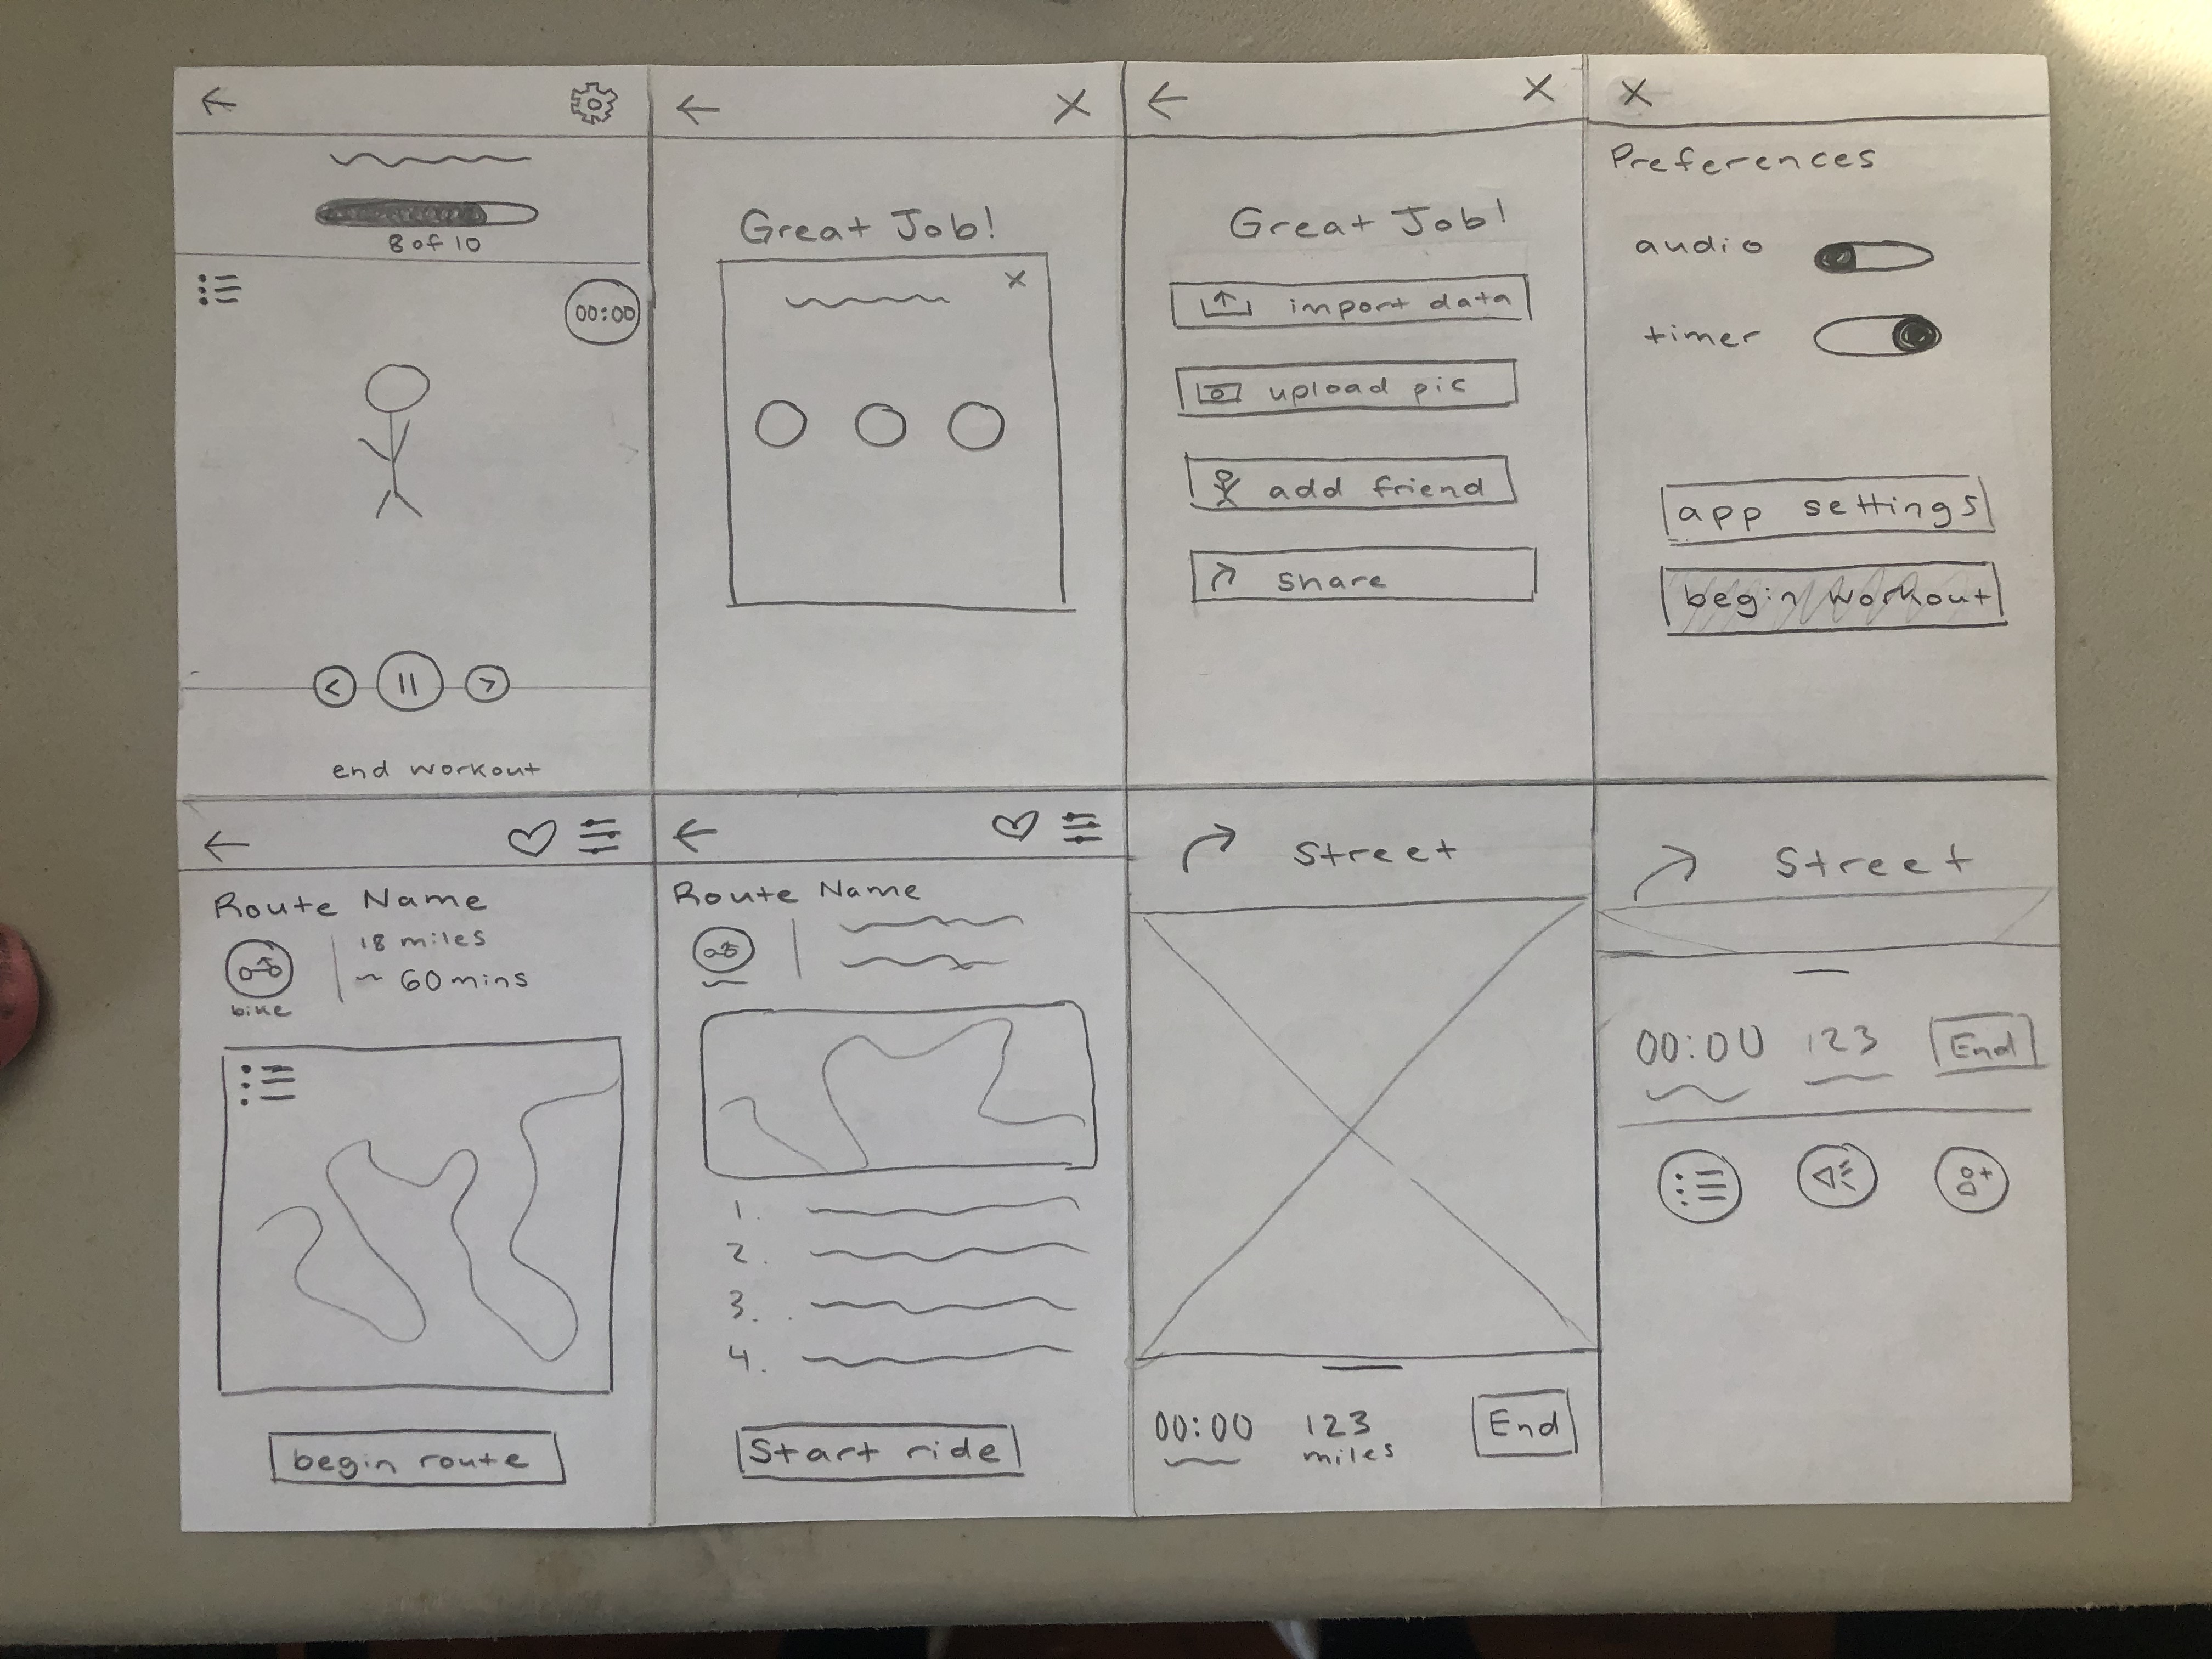 8 of 10
00:00
end workout
Great Job!
x
Great Job!
import data
upload pic
add friend
share
X
Preferences
audio
timer
app settings
begin workout
Route Name
18 miles
~ 60 mins
bike
begin route
Route Name
1.
2.
3.
4.
Start ride
Street
00:00 123 End
miles
Street
00:00 123 End